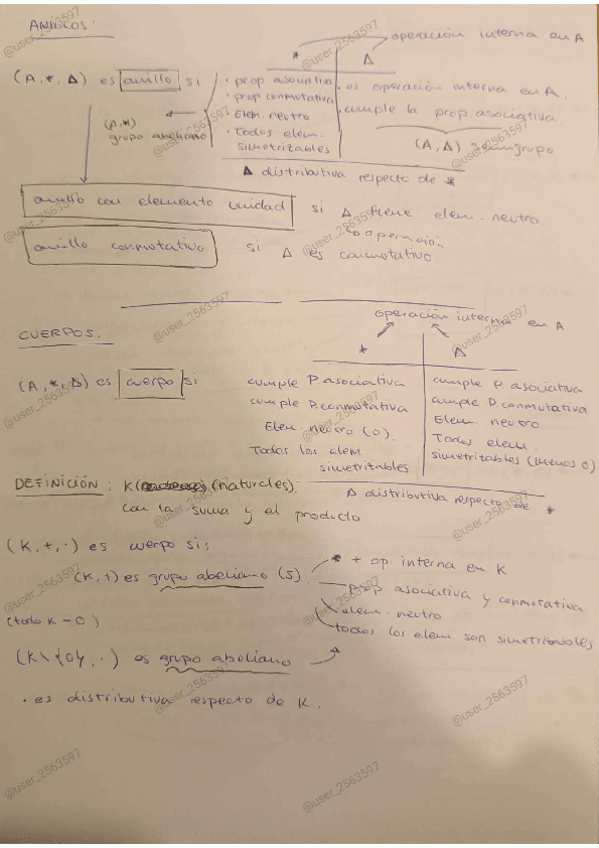 ANILLOS:
* Δ operación interna en A
(A, *, Δ) es anillo si
(A,*)
grupo abeliano
· prop asociativa
· prop conmutativa
· Elem. neutro
· Todos elem.
simetrizables
· es operación interna en A.
· cumple la prop. asociativa
(A, Δ) semigrupo
Δ distributiva respecto de *
anillo con elemento unidad si Δ tiene elem. neutro.
operación
anillo conmutativo si Δ es conmutativo.
CUERPOS.
operación interna en A
* Δ
(A, *, Δ) es cuerpo si
cumple P. asociativa
cumple P. conmutativa
Elem. neutro (0).
Todos los elem.
simetrizables
cumple P. asociativa
cumple P. conmutativa
Elem neutro
Todos elem.
simetrizables (menos 0)
Δ distributiva respectiva de *
DEFINICIÓN: K (naturales).
con la suma y el producto
(K, +, ·) es cuerpo si:
(K, +) es grupo abeliano (S).
+ op. interna en K
prop asociativa y conmutativa
elem. neutro
todos los elem son simetrizables
(todo K - 0)
(K\{0}, ·) es grupo abeliano
· es distributiva respecto de K.
@user_2563597